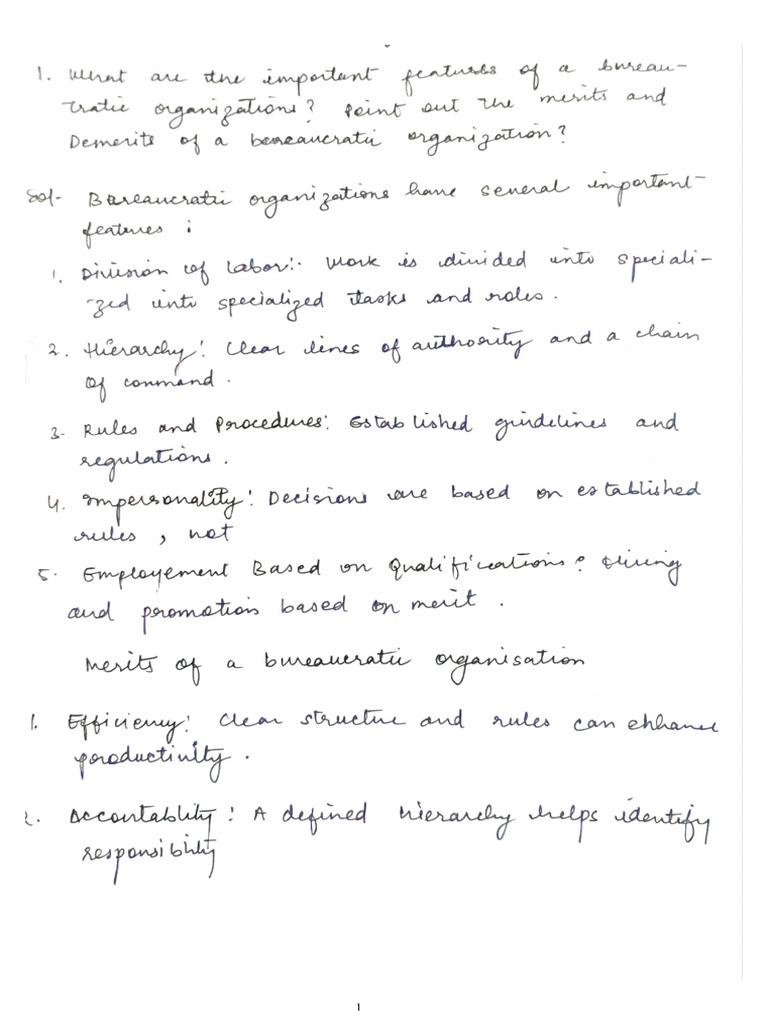 1. What are the important features of a bureau-
cratic organizations? Point out the merits and
Demerits of a bereaucratic organization?
Sol- Bareaucratic organizations have several important
features :
1. Division of labor:- Work is divided into speciali-
zed into specialized tasks and roles.
2. Hierarchy: Clear lines of authority and a chain
of command.
3- Rules and Procedures: Established guidelines and
regulations.
4. Impersonality: Decisions are based on established
rules, not
5. Employement Based on Qualifications: Hiring
and promotion based on merit.
Merits of a bureaucratic organisation
1. Efficiency: Clear structure and rules can ehhance
productivity.
2. Accountablity: A defined hierarchy helps identify
responsibility
1